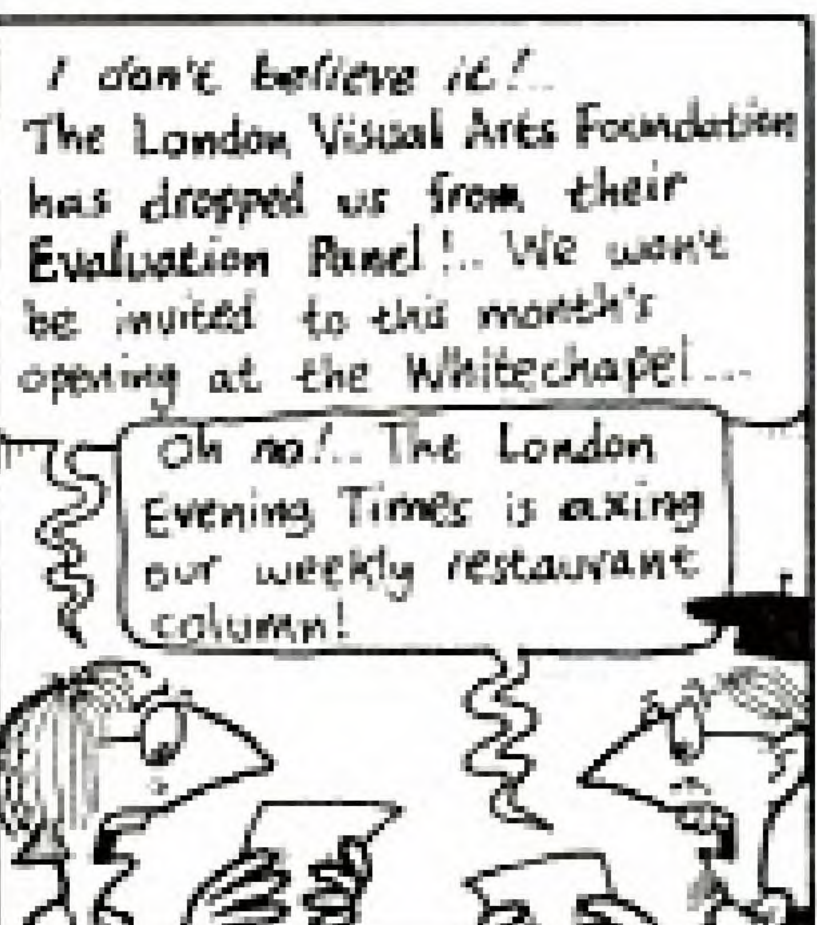 I don't believe it!..
The London Visual Arts Foundation
has dropped us from their
Evaluation Panel!.. We won't
be invited to this month's
opening at the Whitechapel...
Oh no!.. The London
Evening Times is axing
our weekly restaurant
column!